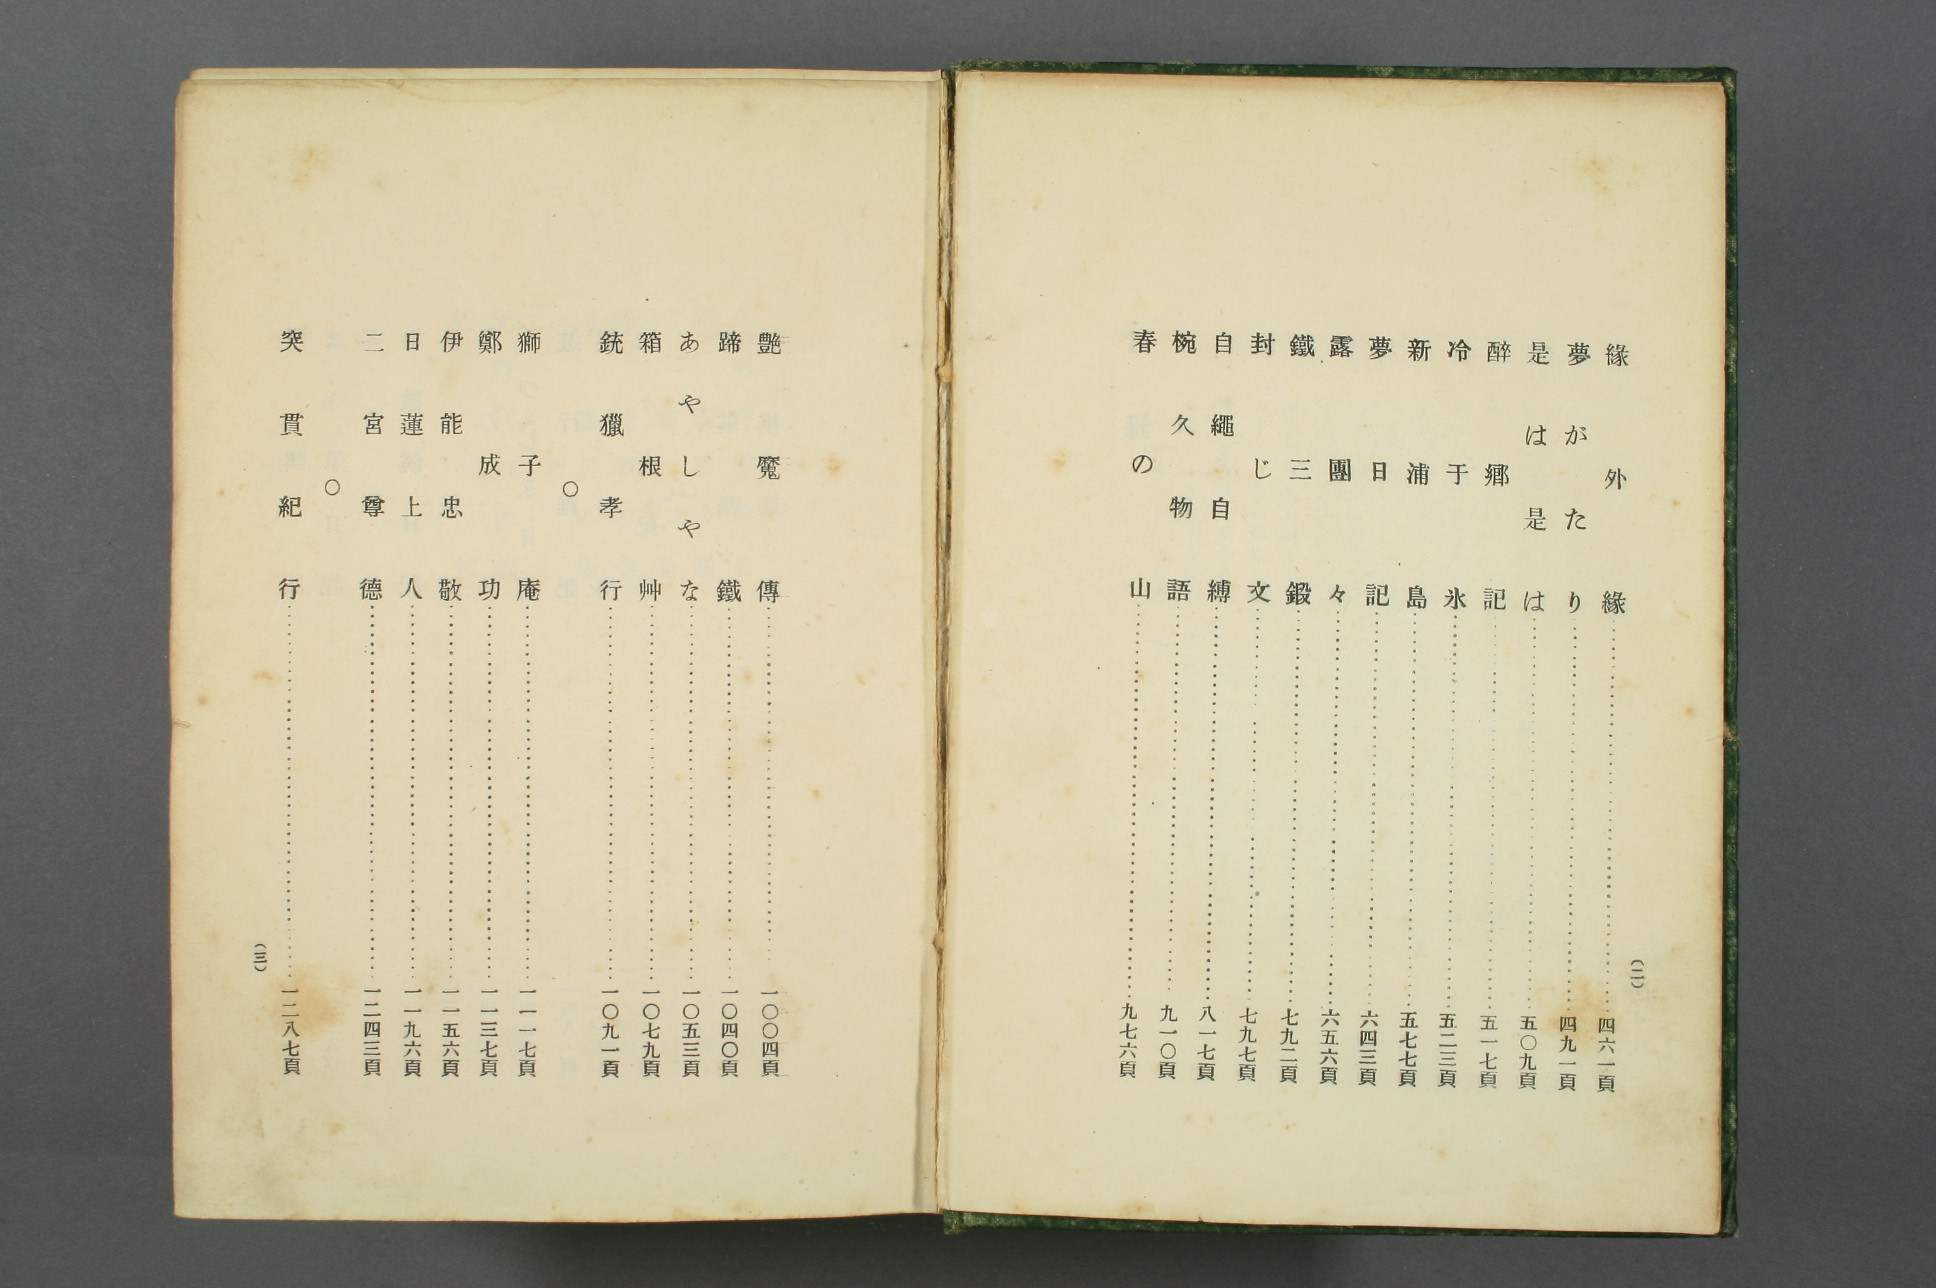 緣外緣……四六一頁
夢がたり……四九一頁
是は是は……五〇九頁
醉鄕記……五一七頁
冷于氷……五二三頁
新浦島……五七七頁
夢日記……六四三頁
露團々……六五六頁
鐵三鍛……七九二頁
封じ文……七九七頁
自繩自縛……八一七頁
椀久物語……九一〇頁
春の山……九七六頁
(二)
艶魔傳……一〇〇四頁
蹄鐵……一〇四〇頁
あやしやな……一〇五三頁
箱根艸……一〇七九頁
銃獵孝行……一〇九一頁
〇
獅子庵……一一一七頁
鄭成功……一一三七頁
伊能忠敬……一一五六頁
日蓮上人……一一九六頁
二宮尊德……一二四三頁
〇
突貫紀行……一二八七頁
(三)